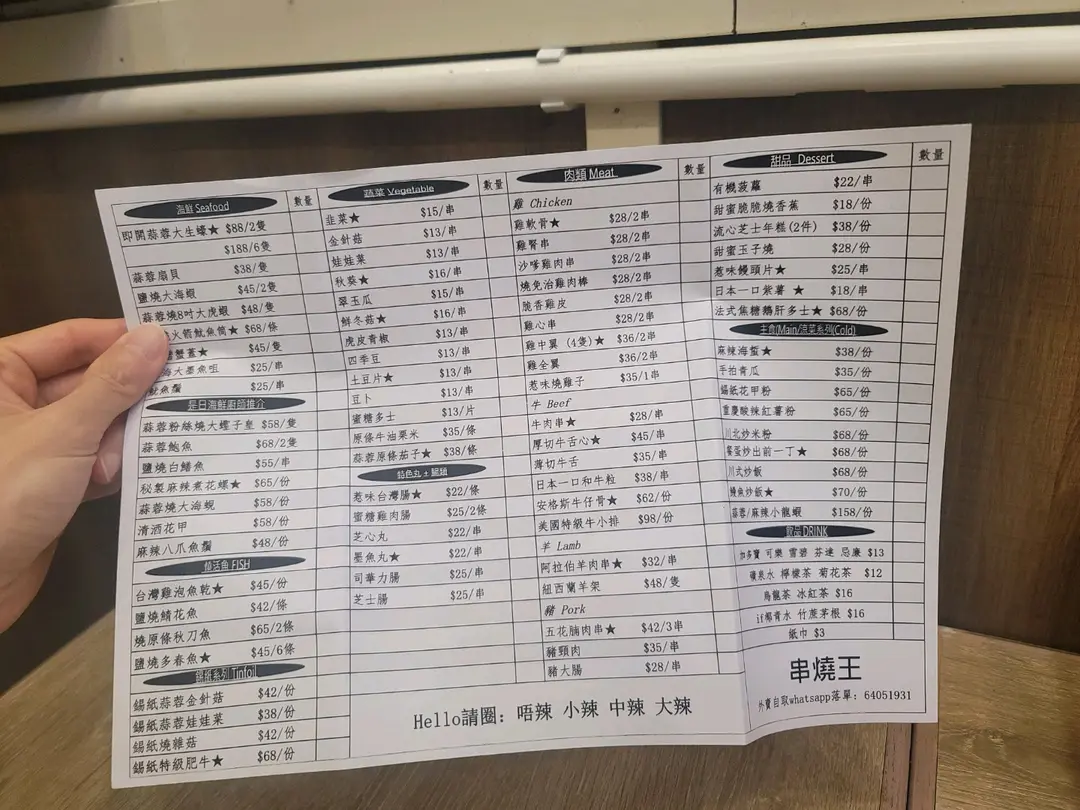 海鮮 Seafood
數量
即開蒜蓉大生蠔★ $88/2隻
$188/6隻
蒜蓉扇貝 $38/隻
鹽燒大海蝦 $45/2隻
蒜蓉燒8吋大虎蝦 $48/隻
火箭魷魚筒★ $68/條
蟹蓋★ $45/隻
大墨魚咀 $25/串
魷魚鬚 $25/串
是日海鮮廚師推介
蒜蓉粉絲燒大蟶子皇 $58/隻
蒜蓉鮑魚 $68/2隻
鹽燒白鱔魚 $55/串
秘製麻辣煮花螺★ $65/份
蒜蓉燒大海蜆 $58/份
清酒花甲 $58/份
麻辣八爪魚鬚 $48/份
燒活魚 FISH
台灣雞泡魚乾★ $45/份
鹽燒鯖花魚 $42/條
燒原條秋刀魚 $65/2條
鹽燒多春魚★ $45/6條
錫紙系列 Tinfoil
錫紙蒜蓉金針菇 $42/份
錫紙蒜蓉娃娃菜 $38/份
錫紙燒雜菇 $42/份
錫紙特級肥牛★ $68/份
蔬菜 Vegetable
數量
韭菜★ $15/串
金針菇 $13/串
娃娃菜 $13/串
秋葵★ $16/串
翠玉瓜 $15/串
鮮冬菇★ $16/串
虎皮青椒 $13/串
四季豆 $13/串
土豆片★ $13/串
豆卜 $13/串
蜜糖多士 $13/片
原條牛油粟米 $35/條
蒜蓉原條茄子★ $38/條
特色丸＋腸類
惹味台灣腸★ $22/條
蜜糖雞肉腸 $25/2條
芝心丸 $22/串
墨魚丸★ $22/串
司華力腸 $25/串
芝士腸 $25/串
肉類 Meat
數量
雞 Chicken
雞軟骨★ $28/2串
雞腎串 $28/2串
沙嗲雞肉串 $28/2串
燒免治雞肉棒 $28/2串
脆香雞皮 $28/2串
雞心串 $28/2串
雞中翼 (4隻)★ $36/2串
雞全翼 $36/2串
惹味燒雞子 $35/1串
牛 Beef
牛肉串★ $28/串
厚切牛舌心★ $45/串
薄切牛舌 $35/串
日本一口和牛粒 $38/串
安格斯牛仔骨★ $62/份
美國特級牛小排 $98/份
羊 Lamb
阿拉伯羊肉串★ $32/串
紐西蘭羊架 $48/隻
豬 Pork
五花腩肉串★ $42/3串
豬頸肉 $35/串
豬大腸 $28/串
甜品 Dessert
數量
有機菠蘿 $22/串
甜蜜脆脆燒香蕉 $18/份
流心芝士年糕(2件) $38/份
甜蜜玉子燒 $28/份
惹味饅頭片★ $25/串
日本一口紫薯 ★ $18/串
法式焦糖鵝肝多士★ $68/份
主食(Main/涼菜系列(Cold)
麻辣海蜇★ $38/份
手拍青瓜 $35/份
錫紙花甲粉 $65/份
重慶酸辣紅薯粉 $65/份
川北炒米粉 $68/份
餐蛋炒出前一丁★ $68/份
川式炒飯 $68/份
鰻魚炒飯★ $70/份
蒜蓉/麻辣小龍蝦 $158/份
飲品 DRINK
加多寶 可樂 雪碧 芬達 忌廉 $13
礦泉水 檸檬茶 菊花茶 $12
烏龍茶 冰紅茶 $16
if椰青水 竹蔗茅根 $16
紙巾 $3
串燒王
外賣自取whatsapp落單: 64051931
Hello請圈: 唔辣 小辣 中辣 大辣